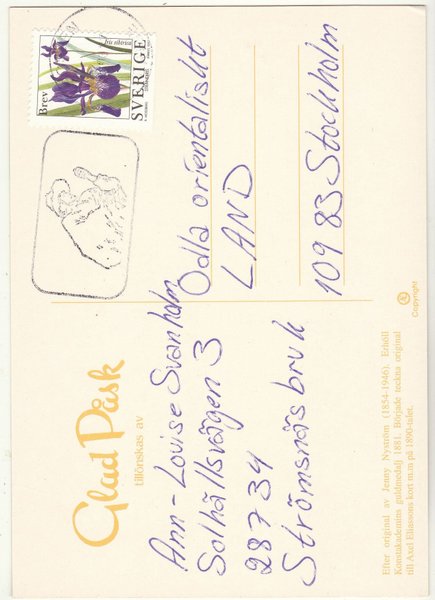 Glad Påsk
tillönskas av
Ann-Louise Svanholm
Solhällsvägen 3
287 34
Strömsnäsbruk
Brev
Iris sibirica
SVERIGE
Odla orientaliskt
LAND
109 83 Stockholm
Efter original av Jenny Nyström (1854-1946). Erhöll
Konstakademins guldmedalj 1881. Började teckna original
till Axel Eliassons kort m.m på 1890-talet.
Copyright